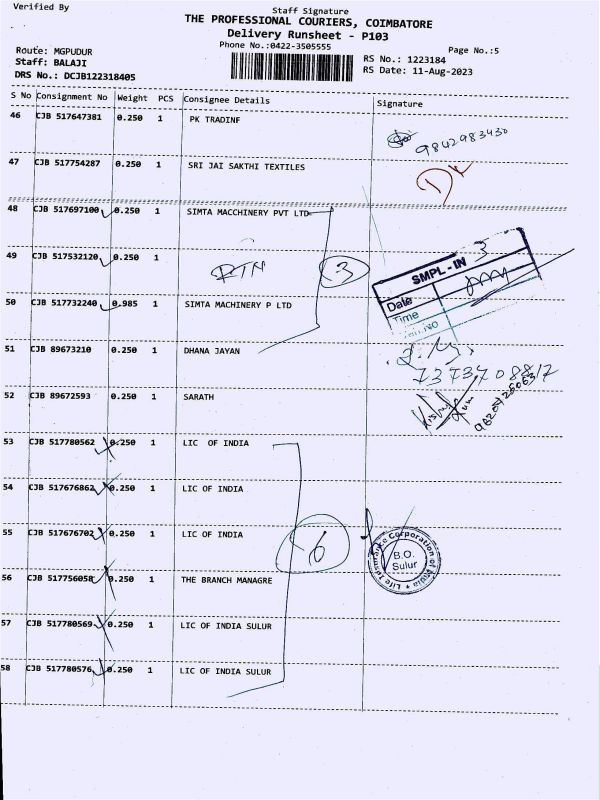 Verified By
Staff Signature
THE PROFESSIONAL COURIERS, COIMBATORE
Delivery Runsheet - P103
Phone No.:0422-3505555
Page No.:5
Route: MGPUDUR
RS No.: 1223184
Staff: BALAJI
RS Date: 11-Aug-2023
DRS No.: DCJB122318405
S No Consignment No Weight PCS Consignee Details Signature
46 CJB 517647381 0.250 1 PK TRADINF
9842983430
47 CJB 517754287 0.250 1 SRI JAI SAKTHI TEXTILES
48 CJB 517697100 0.250 1 SIMTA MACCHINERY PVT LTD
49 CJB 517532120 0.250 1 RTN 3
SMPL - IN 3
Date
Time
50 CJB 517732240 0.985 1 SIMTA MACHINERY P LTD
51 CJB 89673210 0.250 1 DHANA JAYAN
52 CJB 89672593 0.250 1 SARATH
53 CJB 517780562 0.250 1 LIC OF INDIA
54 CJB 517676862 0.250 1 LIC OF INDIA
55 CJB 517676702 0.250 1 LIC OF INDIA
6
Life Insurance Corporation of India
B.O.
Sulur
56 CJB 517756058 0.250 1 THE BRANCH MANAGRE
57 CJB 517780569 0.250 1 LIC OF INDIA SULUR
58 CJB 517780576 0.250 1 LIC OF INDIA SULUR